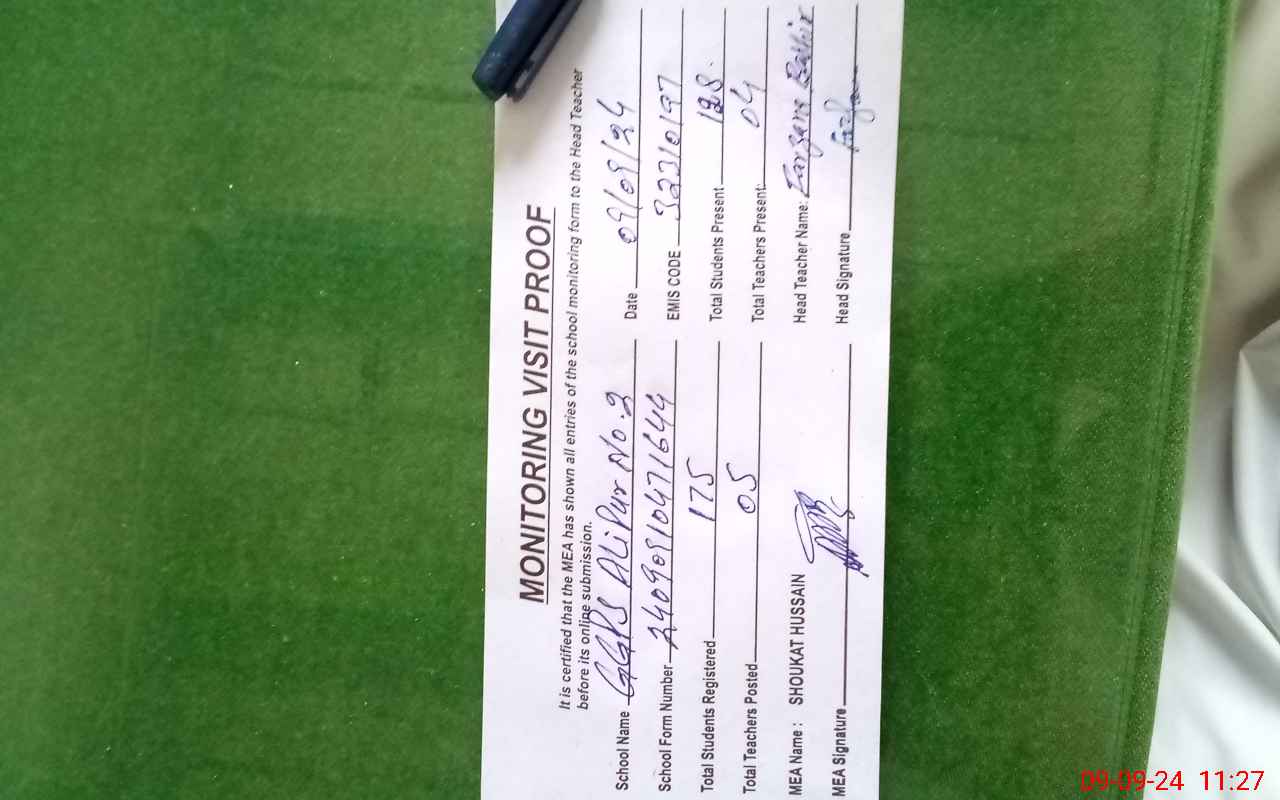 MONITORING VISIT PROOF
It is certified that the MEA has shown all entries of the school monitoring form to the Head Teacher
before its online submission.
School Name GGPS Alipur No.2 Date 09/09/24
School Form Number 24090910471644 EMIS CODE 32310197
Total Students Registered 175 Total Students Present 128.
Total Teachers Posted 05 Total Teachers Present: 04
MEA Name : SHOUKAT HUSSAIN Head Teacher Name: Farzana Bashir
MEA Signature Head Signature
09-09-24 11:27